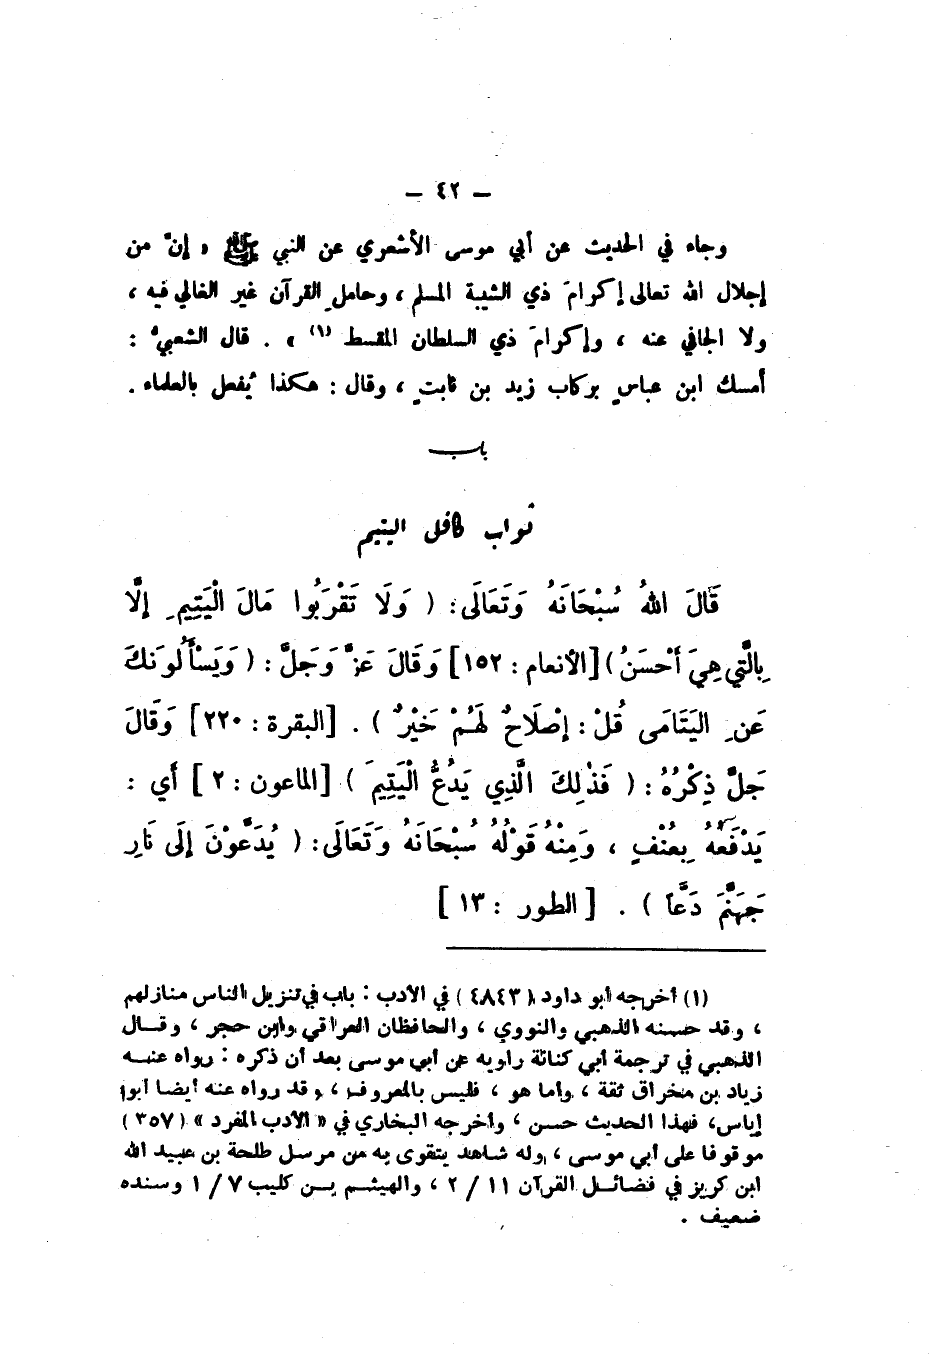 – ٤٢ –
وجاء في الحديث عن أبي موسى الأشعري عن النبي ﷺ « إنّ من
إجلال الله تعالى إكرامَ ذي الشيبة المسلم ، وحاملِ القرآن غير الغالي فيه ،
ولا الجافي عنه ، وإكرامَ ذي السلطان المقسط (١) » . قال الشعبيُّ :
أمسك ابن عباسٍ بركاب زيد بن ثابتٍ ، وقال : هكذا يُفعل بالعلماء .
باب
ثواب كافل اليتيم
قَالَ اللهُ سُبْحَانَهُ وَتَعَالَى: ( وَلَا تَقْرَبُوا مَالَ الْيَتِيمِ إِلَّا
بِالَّتِي هِيَ أَحْسَنُ ) [الأنعام : ١٥٢] وَقَالَ عَزَّ وَجَلَّ : ( وَيَسْأَلُونَكَ
عَنِ اليَتَامَى قُلْ : إِصْلَاحٌ لَهُمْ خَيْرٌ ) . [البقرة : ٢٢٠] وَقَالَ
جَلَّ ذِكْرُهُ : ( فَذَلِكَ الَّذِي يَدُعُّ الْيَتِيمَ ) [الماعون : ٢ ] أَي :
يَدْفَعُهُ بِعُنْفٍ ، وَمِنْهُ قَوْلُهُ سُبْحَانَهُ وَتَعَالَى: ( يُدَعُّوْنَ إِلَى نَارِ
جَهَنَّمَ دَعَّاً ) . [ الطور : ١٣ ]
(١) أخرجه أبو داود (٤٨٤٣) في الأدب : باب في تنزيل الناس منازلهم
، وقد حسنه الذهبي والنووي ، والحافظان العراقي وابن حجر ، وقال
الذهبي في ترجمة أبي كنانة راويه عن أبي موسى بعد أن ذكره : رواه عنه
زياد بن مخراق ثقة ، وأما هو ، فليس بالمعروف ، وقد رواه عنه أيضا أبو
إياس، فهذا الحديث حسن ، وأخرجه البخاري في « الأدب المفرد » (٣٥٧)
موقوفا على أبي موسى ، وله شاهد يتقوى به من مرسل طلحة بن عبيد الله
ابن كريز في فضائل القرآن ١١ / ٢ ، والهيثم بن كليب ٧ / ١ وسنده
ضعيف .